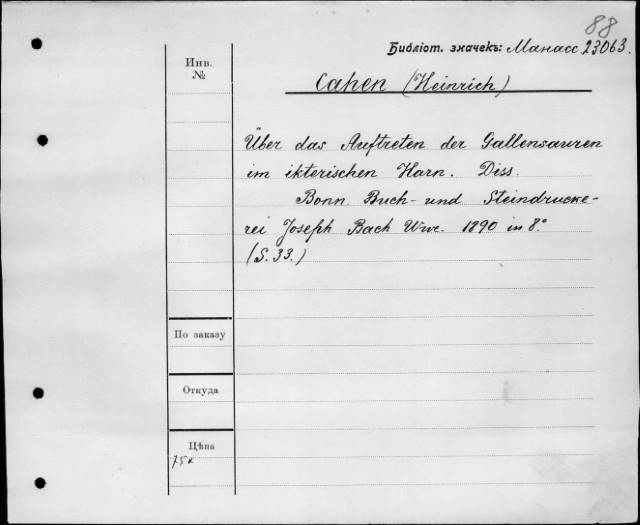 88
Библіот. значекъ: Манасс 23063.
Инв.
№
Cahen (Heinrich)
Über das Auftreten der Gallensäuren
im ikterischen Harn. Diss.
Bonn Buch- und Steindrucke-
rei Joseph Bach Wwe. 1890 in 8.°
(S. 33.)
По заказу
Откуда
Цѣна
75к